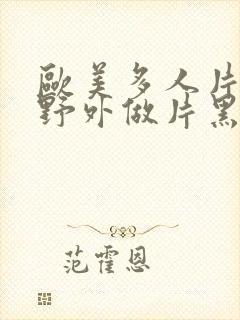 歐美多人片
野外做片黑
范霍恩